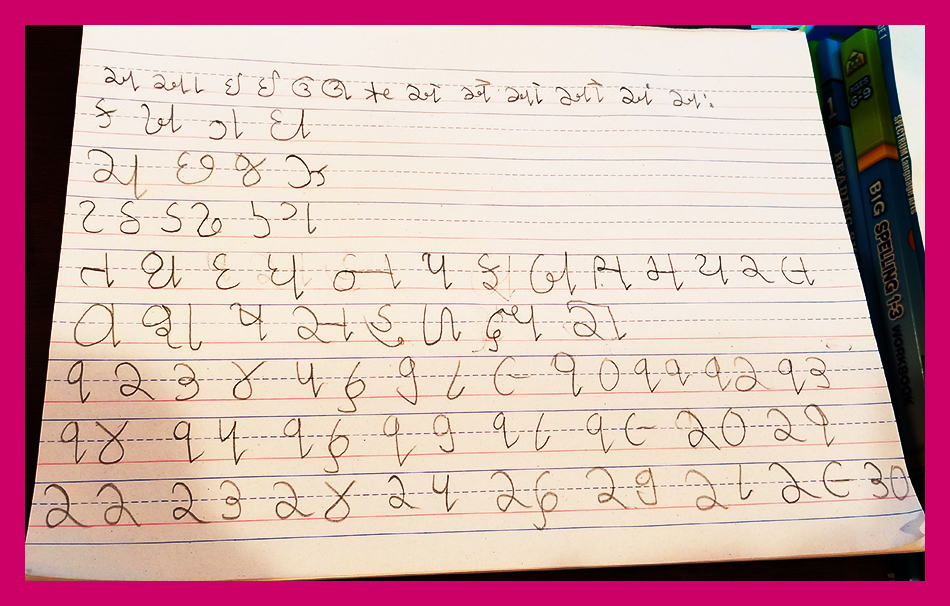 અ આ ઇ ઈ ઉ ઊ ઋ એ ઐ ઓ ઔ અં અઃ
ક ખ ગ ઘ
ચ છ જ ઝ
ટ ઠ ડ ઢ ણ
ત થ દ ધ ન પ ફ બ ભ મ ય ર લ
વ શ ષ સ હ ળ ક્ષ જ્ઞ
૧ ૨ ૩ ૪ ૫ ૬ ૭ ૮ ૯ ૧૦ ૧૧ ૧૨ ૧૩
૧૪ ૧૫ ૧૬ ૧૭ ૧૮ ૧૯ ૨૦ ૨૧
૨૨ ૨૩ ૨૪ ૨૫ ૨૬ ૨૭ ૨૮ ૨૯ ૩૦
1
READING
AGES 6-9
BIG SPELLING 1-3 WORKBOOK
SPECTRUM Language Arts